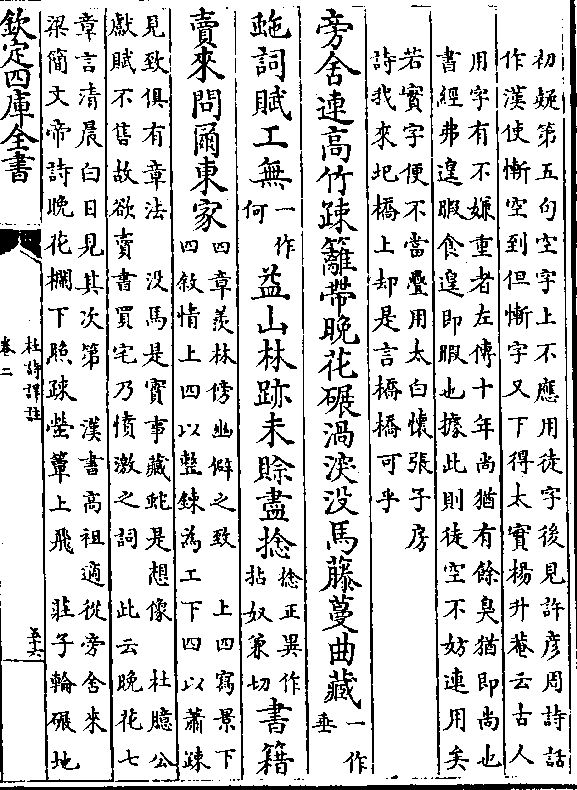 初疑第五句空字上不應用徒字後見許彦周詩話
作漢使慚空到但慚字又下得太實楊升菴云古人
用字有不嫌重者左傳十年尚猶有餘臭猶即尚也
書經弗遑暇食遑即暇也據此則徒空不妨連用矣
若實字便不當疊用太白懷張子房
詩我來圯橋上却是言橋橋可乎
旁舍連高竹踈籬帶晚花碾渦深没馬藤蔓曲藏
一作
垂
虵詞賦工無
一作
何
益山林跡未賒盡捻
捻正異作
拈奴兼切
書籍
賣來問爾東家
四章羨林傍幽僻之致 上四寫景下
四敘情上四以整鍊為工下四以蕭踈
見致俱有章法 没馬是實事藏虵是想像 杜臆公
獻賦不售故欲賣書買宅乃憤激之詞 此云晚花七
章言清晨白日見其次第 漢書高祖適從旁舍來
梁簡文帝詩晚花欄下照踈螢簟上飛 莊子輪碾地
欽定四庫全書
杜詩詳註
卷二
五十六